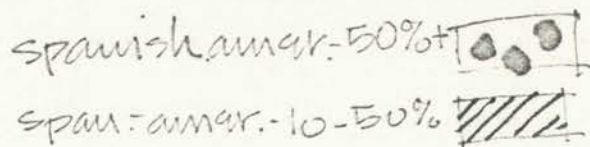 spanish.amer.-50%+
span.-amer.-10-50%